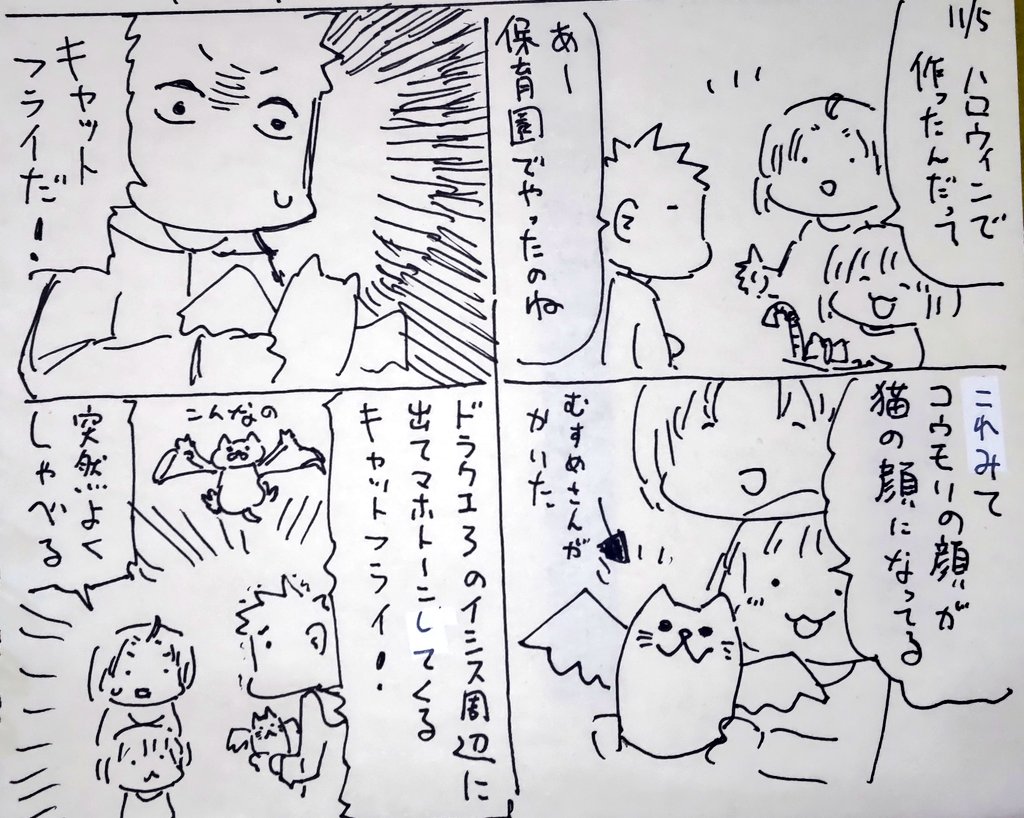 11/5 ハロウィンで
作ったんだって
あー
保育園でやったのね
これみて
コウモリの顔が
猫の顔になってる
むすめさんが
かいた
キャット
フライだ!
ドラクエ3のイシス周辺に
出てマホトーンしてくる
キャットフライ!
こんなの
突然よく
しゃべる